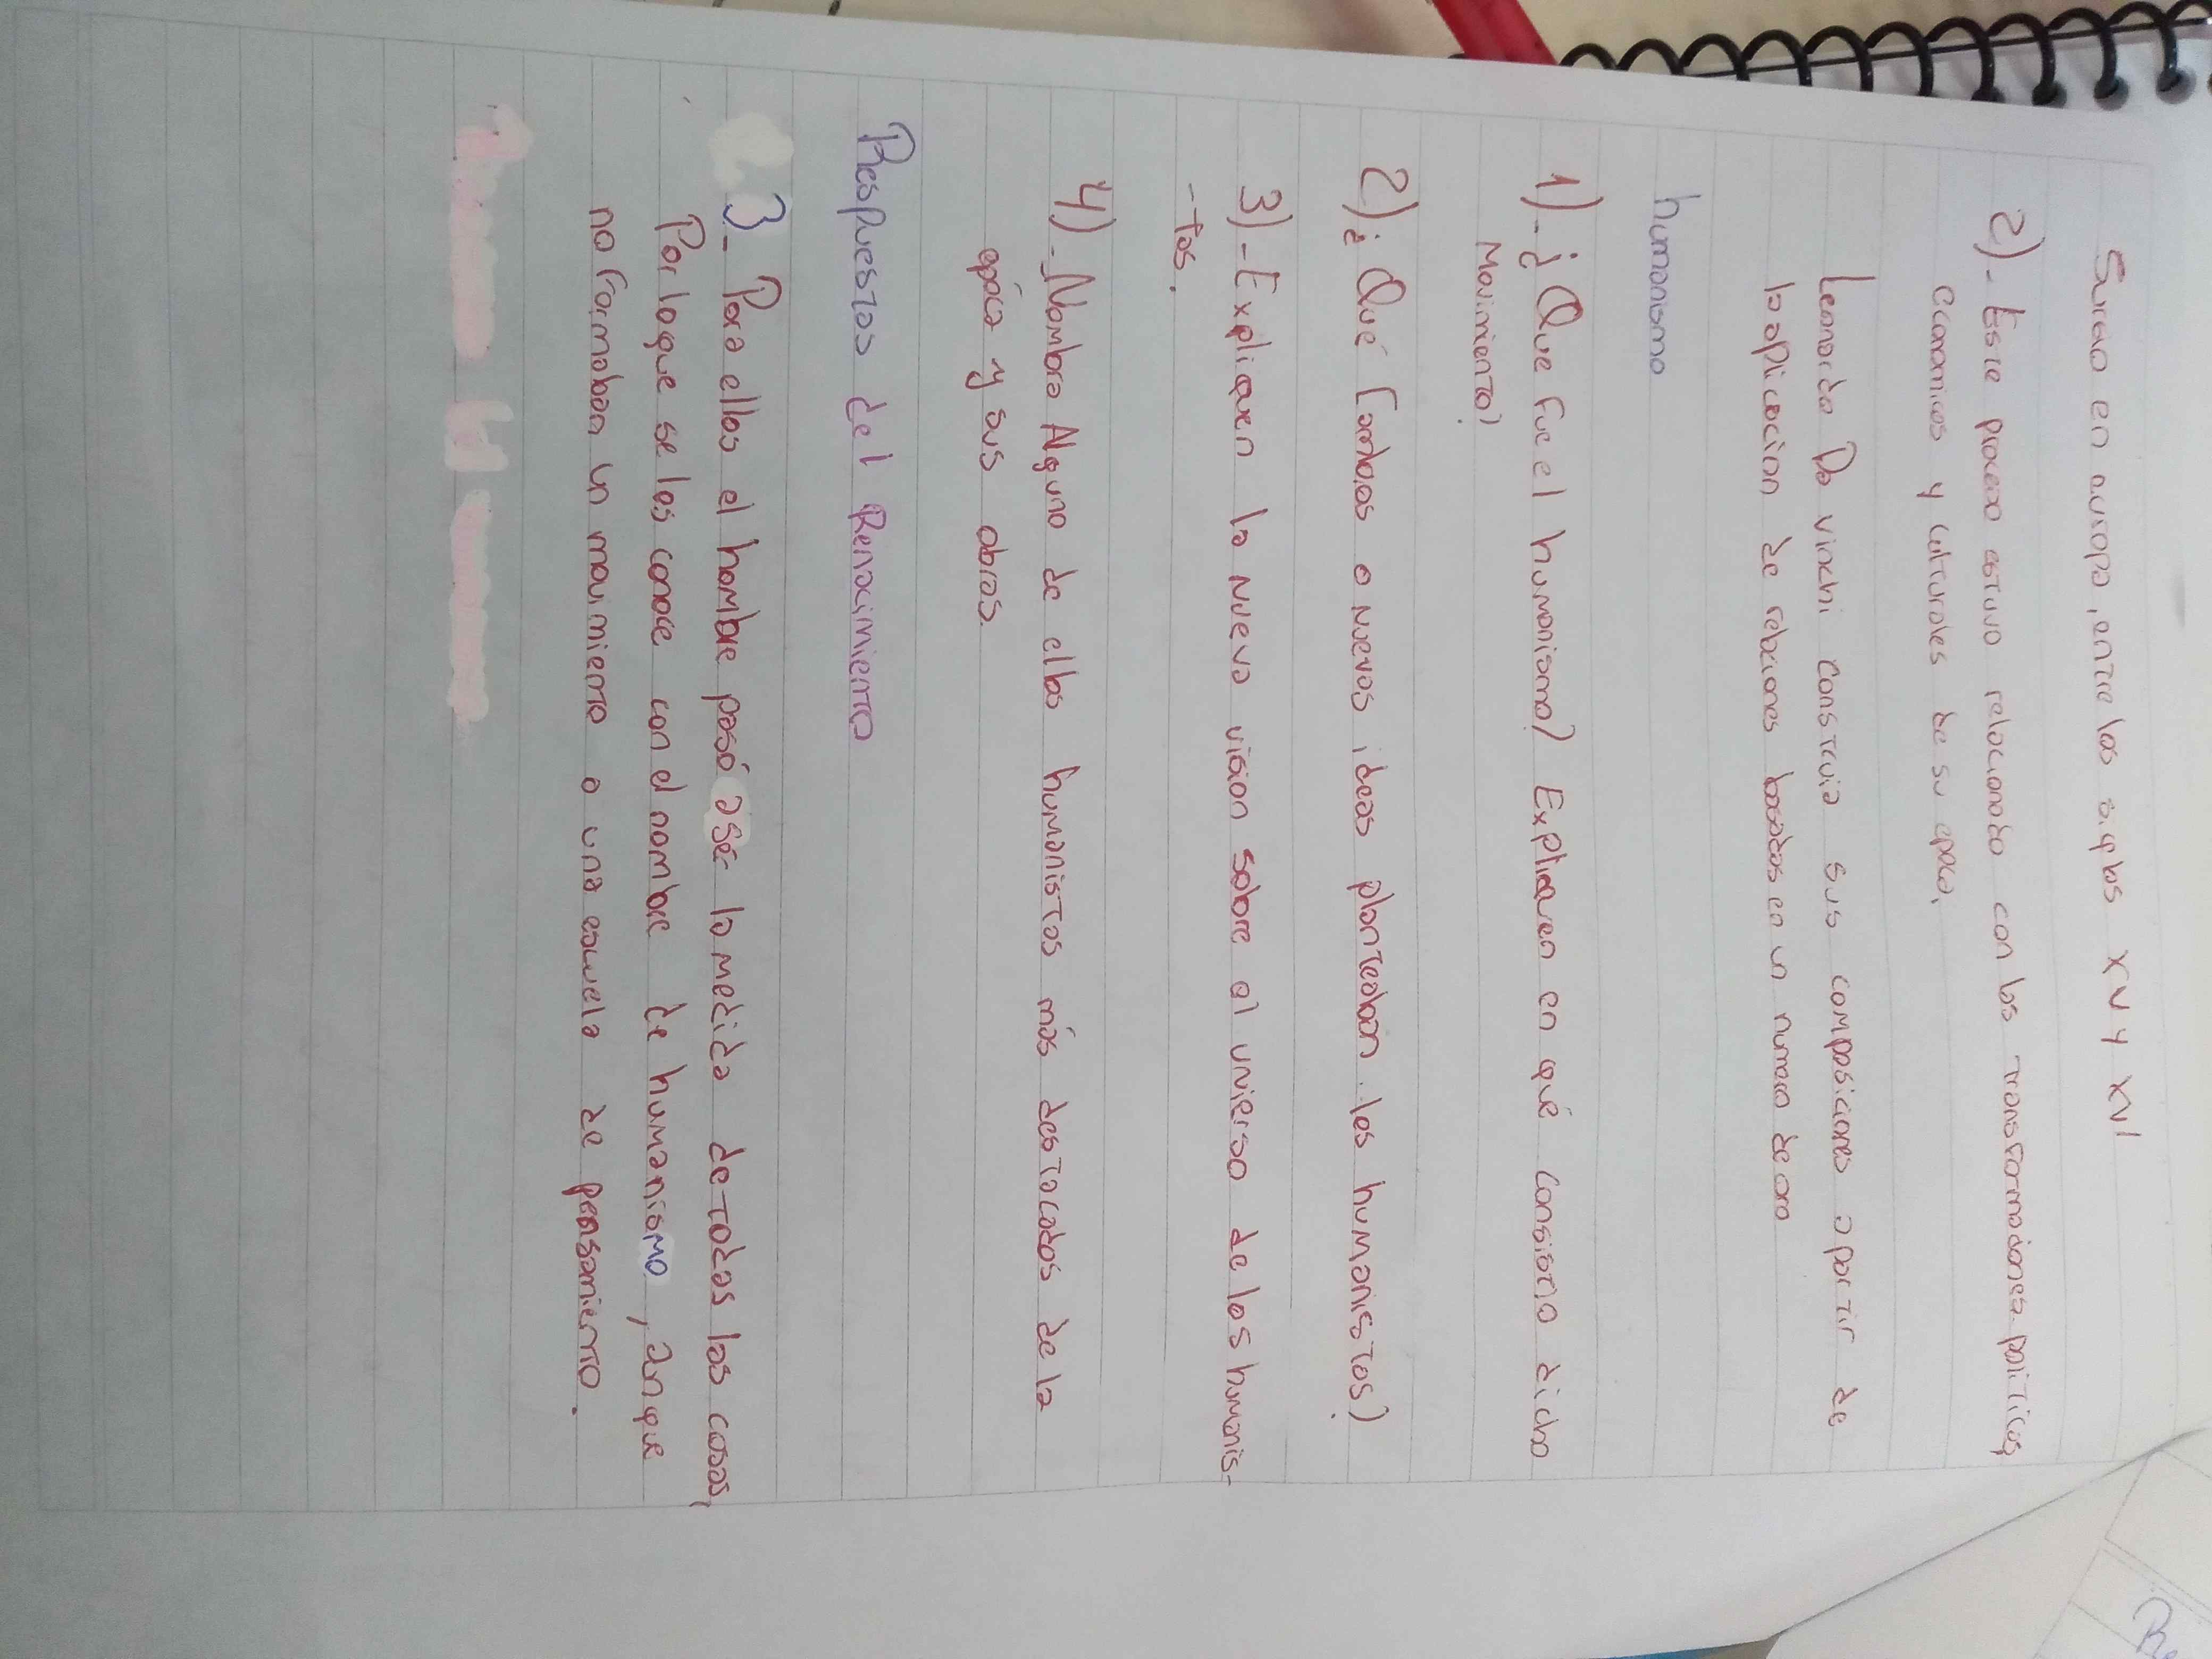 Surgio en auropa, entre los siglos XV y XVI
2)- Este proceso estuvo relacionado con las transformaciones politicas,
economicas y culturales de su epoca.
Leonardo Da vinchi construia sus composiciones a partir de
la aplicacion de relaciones basadas en un numero de oro
humanismo
1)-¿Que fue el humanismo? Expliquen en qué consistio dicho
Movimiento?
2)¿Qué Cambios o nuevas ideas planteaban los humanistas?
3)-Expliquen la nueva vision sobre el universo de los humanis-
-tas.
4)-Nombra Alguno de ellos humanistas más destacados de la
epóca y sus obras.
Respuestas del Renacimiento
3- Para ellos el hombre pasó a ser la medida de todas las cosas,
Por lo que se les conoce con el nombre de humanismo, aunque
no formaban un movimiento o una escuela de pensamiento.